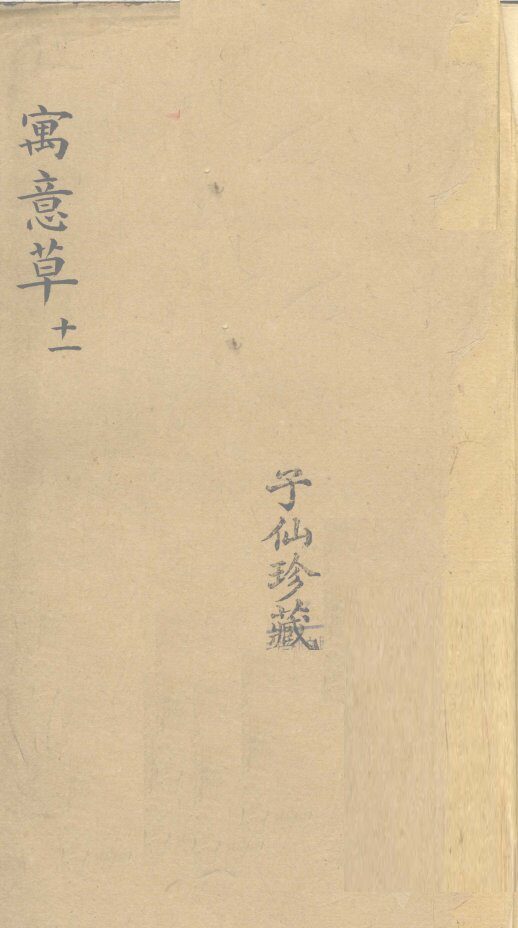 寓意草 十一
子仙珍藏